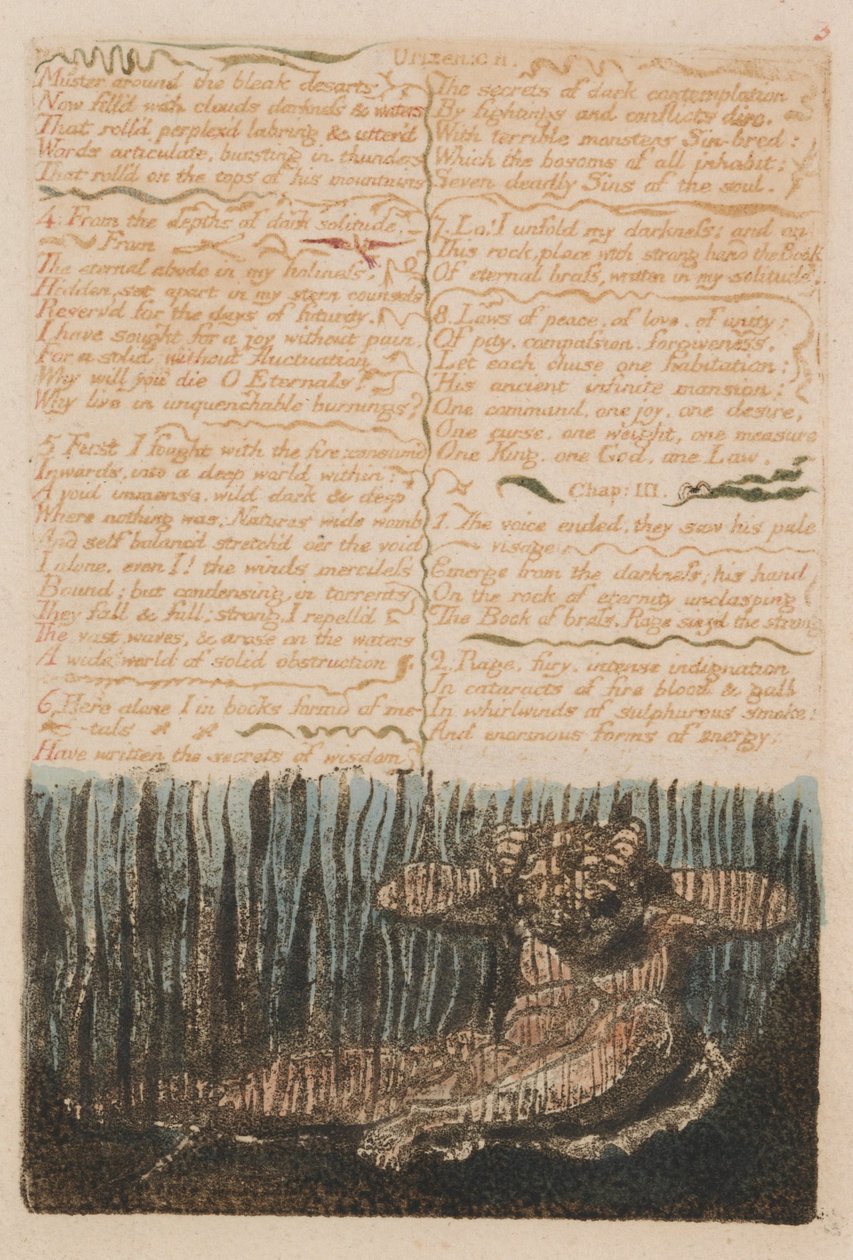 3
Urizen: C II.
Muster around the bleak desarts
Now fill'd with clouds, darkness & waters
That roll'd perplex'd labring & utter'd
Words articulate, bursting in thunders
That roll'd on the tops of his mountains
4: From the depths of dark solitude.
From
The eternal abode in my holiness,
Hidden, set apart in my stern counsels
Reserv'd for the days of futurity,
I have sought for a joy without pain,
For a solid without fluctuation
Why will you die O Eternals?
Why live in unquenchable burnings?
5 First I fought with the fire; consum'd
Inwards, into a deep world within:
A void immense, wild dark & deep,
Where nothing was; Natures wide womb
And self balanc'd stretch'd o'er the void
I alone, even I! the winds merciless
Bound; but condensing, in torrents
They fall & fall; strong, I repell'd
The vast waves, & arose on the waters
A wide world of solid obstruction
6. Here alone I in books formd of me-
-tals
Have written the secrets of wisdom
The secrets of dark contemplation
By fightings and conflicts dire,
With terrible monsters Sin-bred:
Which the bosoms of all inhabit;
Seven deadly Sins of the soul.
7. Lo! I unfold my darkness: and on
This rock, place with strong hand the Book
Of eternal brass, written in my solitude.
8. Laws of peace, of love, of unity:
Of pity, compassion, forgiveness.
Let each chuse one habitation:
His ancient infinite mansion:
One command, one joy, one desire,
One curse, one weight, one measure
One King, one God, one Law.
Chap: III.
1. The voice ended, they saw his pale
visage
Emerge from the darkness; his hand
On the rock of eternity unclasping
The Book of brass. Rage siez'd the strong
2. Rage, fury, intense indignation
In cataracts of fire blood & gall
In whirlwinds of sulphurous smoke:
And enormous forms of energy;